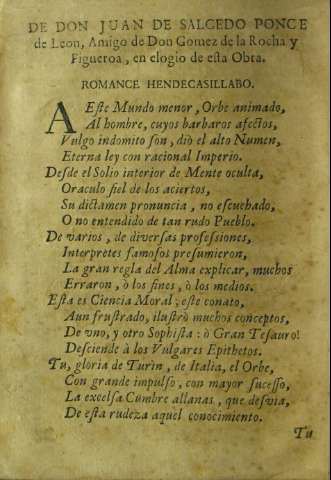 DE DON JUAN DE SALCEDO PONCE
de Leon, Amigo de Don Gomez de la Rocha y
Figueroa, en elogio de esta Obra.
ROMANCE HENDECASILLABO.
A Este Mundo menor, Orbe animado,
Al hombre, cuyos barbaros afectos,
Vulgo indomito son, diò el alto Numen,
Eterna ley con racional Imperio.
Desde el Solio interior de Mente oculta,
Oraculo fiel de los aciertos,
Su dictamen pronuncia, no escuchado,
O no entendido de tan rudo Pueblo.
De varios, de diversas professiones,
Interpretes famosos presumieron,
La gran regla del Alma explicar, muchos
Erraron, ò los fines, ò los medios.
Esta es Ciencia Moral; este conato,
Aun frustrado, ilustrò muchos conceptos,
De uno, y otro Sophista: ò Gran Tesauro!
Desciende à los Vulgares Epithetos.
Tu, gloria de Turin, de Italia, el Orbe,
Con grande impulso, con mayor sucesso,
La excelsa Cumbre allanas, que desvia,
De esta rudeza aquel conocimiento.
Tu